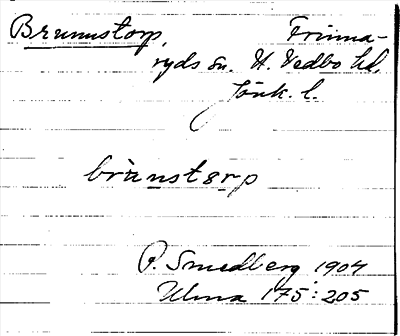 Brunnstorp, Frinna-
ryds sn. N. Vedbo hd,
Jönk. l.
brùnstɵrp
P. Smedberg 1904
Ulma 175:205